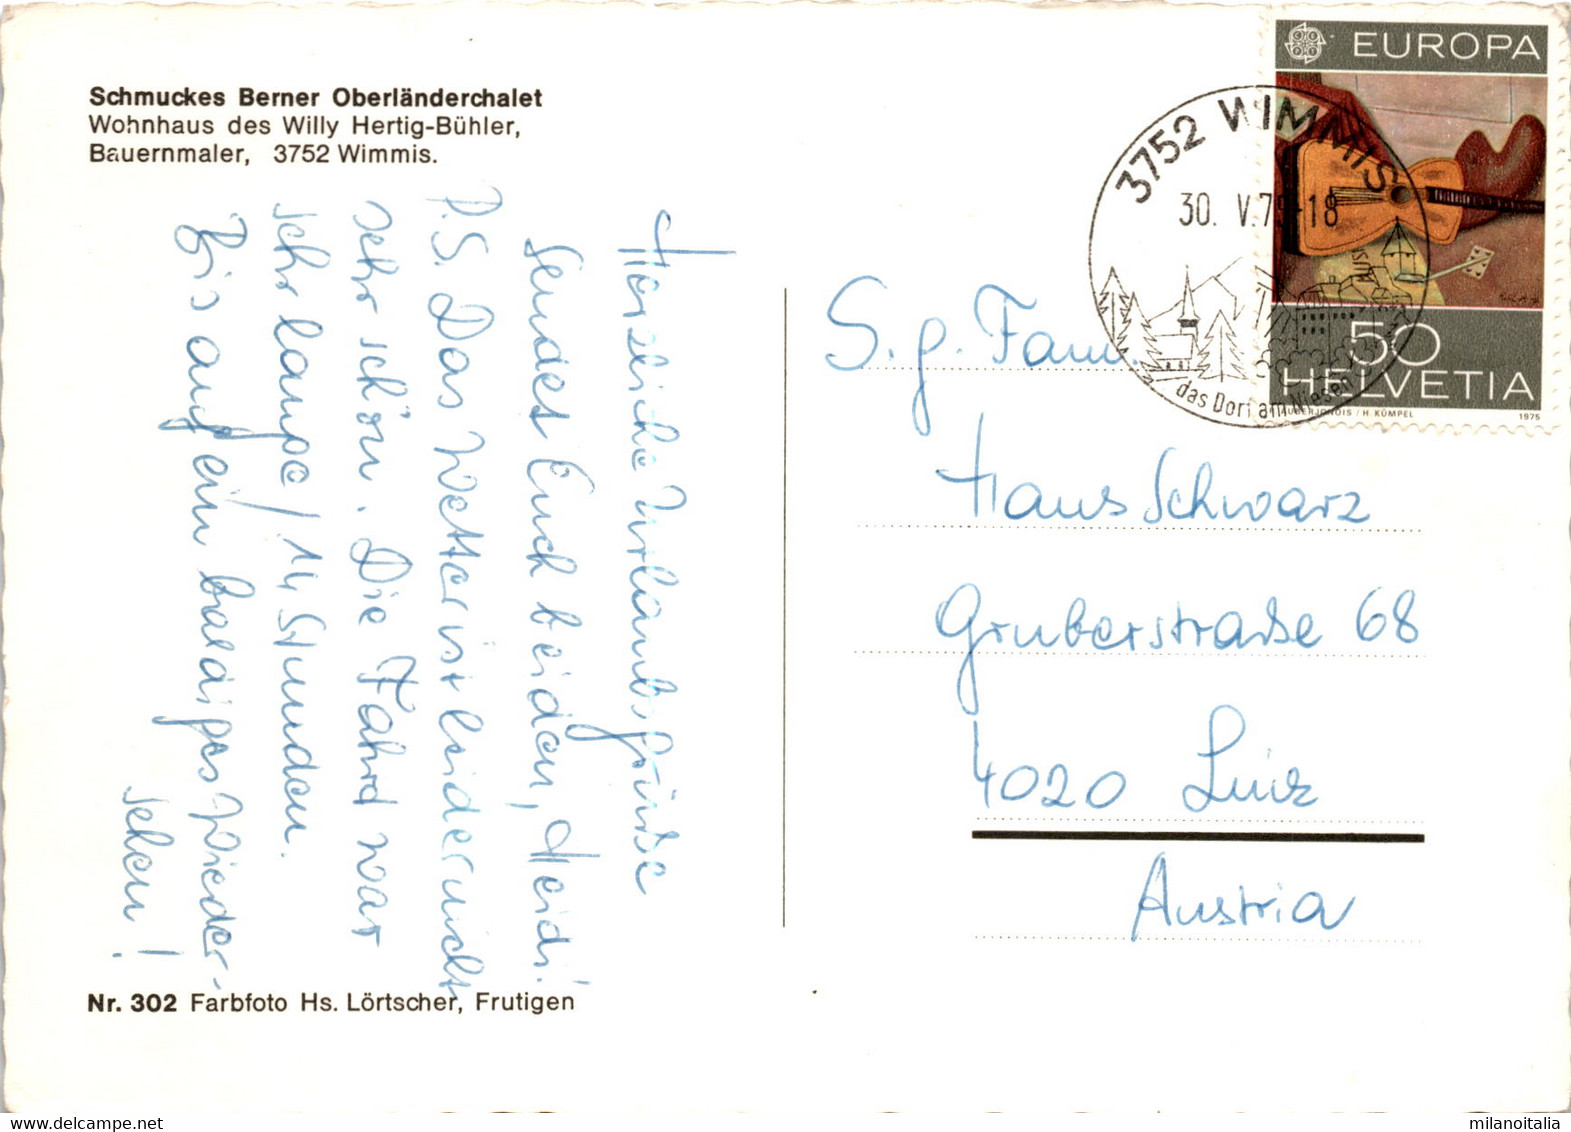 Schmuckes Berner Oberländerchalet
Wohnhaus des Willy Hertig-Bühler,
Bauernmaler, 3752 Wimmis.
Herzliche Urlaubsgrüße
sendet Euch beiden, Heidi!
P.S. Das Wetter ist leider nicht
sehr schön. Die Fahrd war
sehr lange / 14 Stunden.
Bis auf ein baldiges Wieder-
sehen!
Nr. 302 Farbfoto Hs. Lörtscher, Frutigen
EUROPA
50
HELVETIA
H. KÜMPEL
1975
3752 WIMMIS
30. V. 79-18
das Dorf am Niesen
S. g. Fam.
Hans Schwarz
Gruberstraße 68
4020 Linz
Austria
milanoitalia